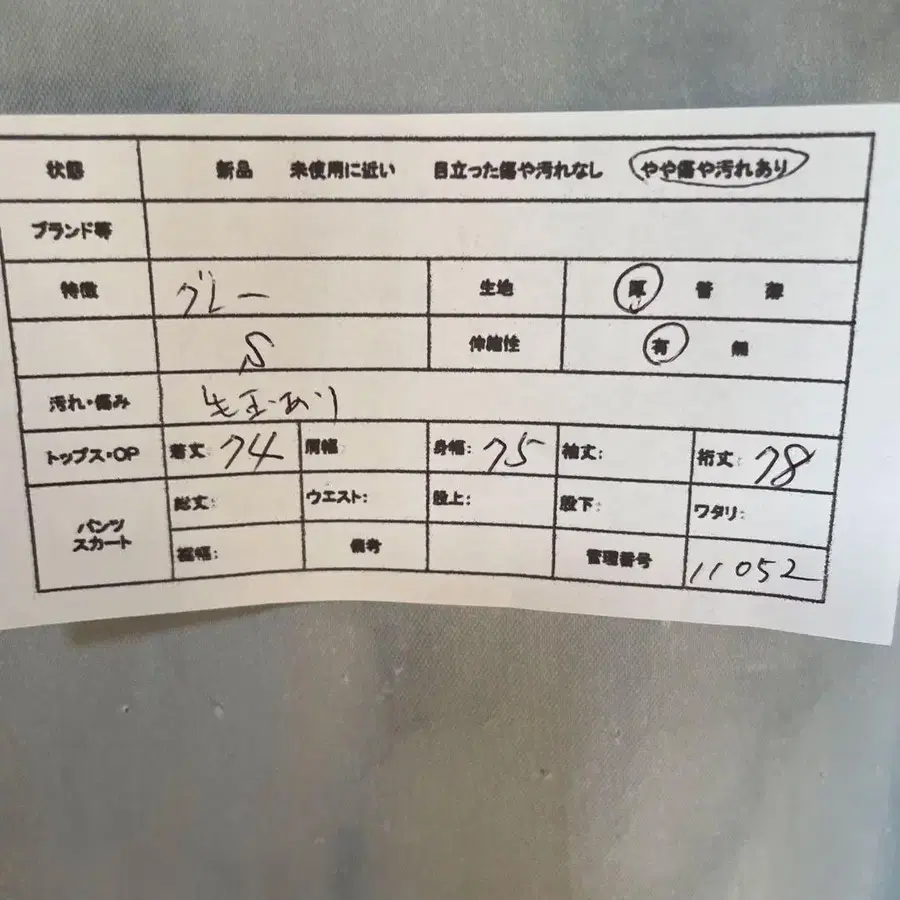 状態 新品 未使用に近い 目立った傷や汚れなし やや傷や汚れあり
ブランド等
特徴 グレー 生地 厚 普 薄
S 伸縮性 有 無
汚れ・傷み 毛玉あり
トップス・OP 着丈: 74 肩幅: 身幅: 75 袖丈: 裄丈: 78
パンツ スカート 総丈: ウエスト: 股上: 股下: ワタリ:
裾幅: 備考 管理番号 11052